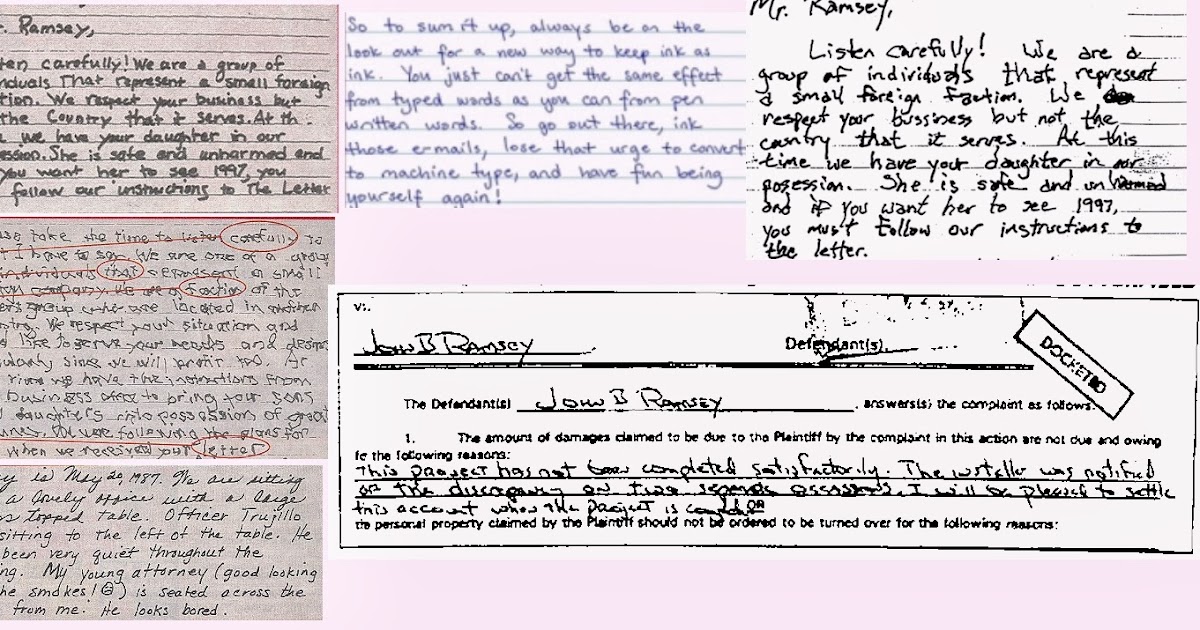 . Ramsey,
ten carefully! We are a group of
nduals That represent a small foreign
tion. We respect your business but
the Country that it serves. At th
we have your daughter in our
ession. She is safe and unharmed and
you want her to see 1997, you
follow our instructions to The Letter
So to sum it up, always be on the
look out for a new way to keep ink as
ink. You just can't get the same effect
from typed words as you can from pen
written words. So go out there, ink
those e-mails, lose that urge to convert
to machine type, and have fun being
yourself again!
Mr. Ramsey,
Listen carefully! We are a
group of individuals that represent
a small foreign faction. We
respect your bussiness but not the
country that it serves. At this
time we have your daughter in our
posession. She is safe and unharmed
and if you want her to see 1997,
you must follow our instructions to
the letter.
take the time to listen carefully to
t I have to say. We are one of a group
individuals that represent a small
company. We are a faction of the
group who are located in
. We respect your situation and
like to serve your needs and
since we will profit too. At
time we have the instructions from
business to bring your sons
daughters into possession of great
. You were following the plans for
when we received your letter
y is May 20, 1987. We are sitting
a lovely office with a large
s topped table. Officer Trujillo
sitting to the left of the table. He
been very quiet throughout the
ng. My young attorney (good looking
he smokes! ) is seated across the
from me. He looks bored.
v:
John B Ramsey
Defendant(s).
DOCKETED
The Defendant(s) John B Ramsey, answers(s) the complaint as follows:
1. The amount of damages claimed to be due to the Plaintiff by the complaint in this action are not due and owing
fo the following reasons:
This project has not been completed satisfactorily. The installer was notified
of the discrepancy on two separate occassions. I will be pleased to settle
this account when the project is
OR
the personal property claimed by the Plaintiff should not be ordered to be turned over for the following reasons: